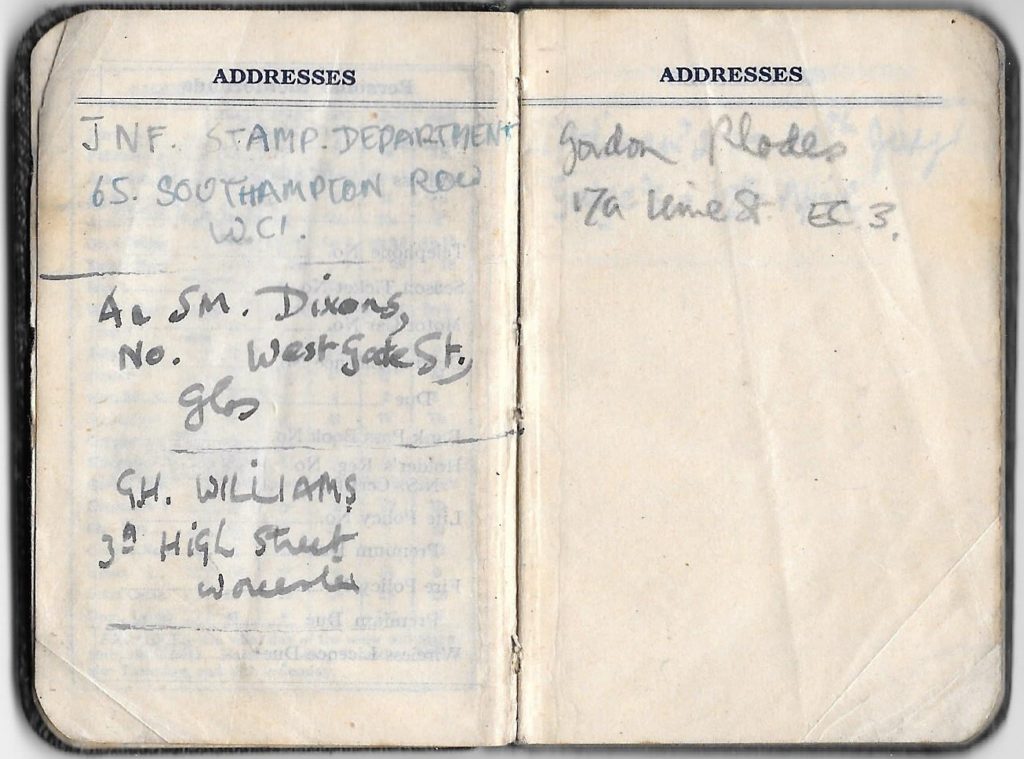 ADDRESSES
JNF. STAMP. DEPARTMENT
65. SOUTHAMPTON ROW
W.C1.
SM. Dixons,
No. West Gate St.,
Glos
G.H. WILLIAMS
High Street
Worcester
ADDRESSES
Gordon Rhodes
17a Lime St EC 3.